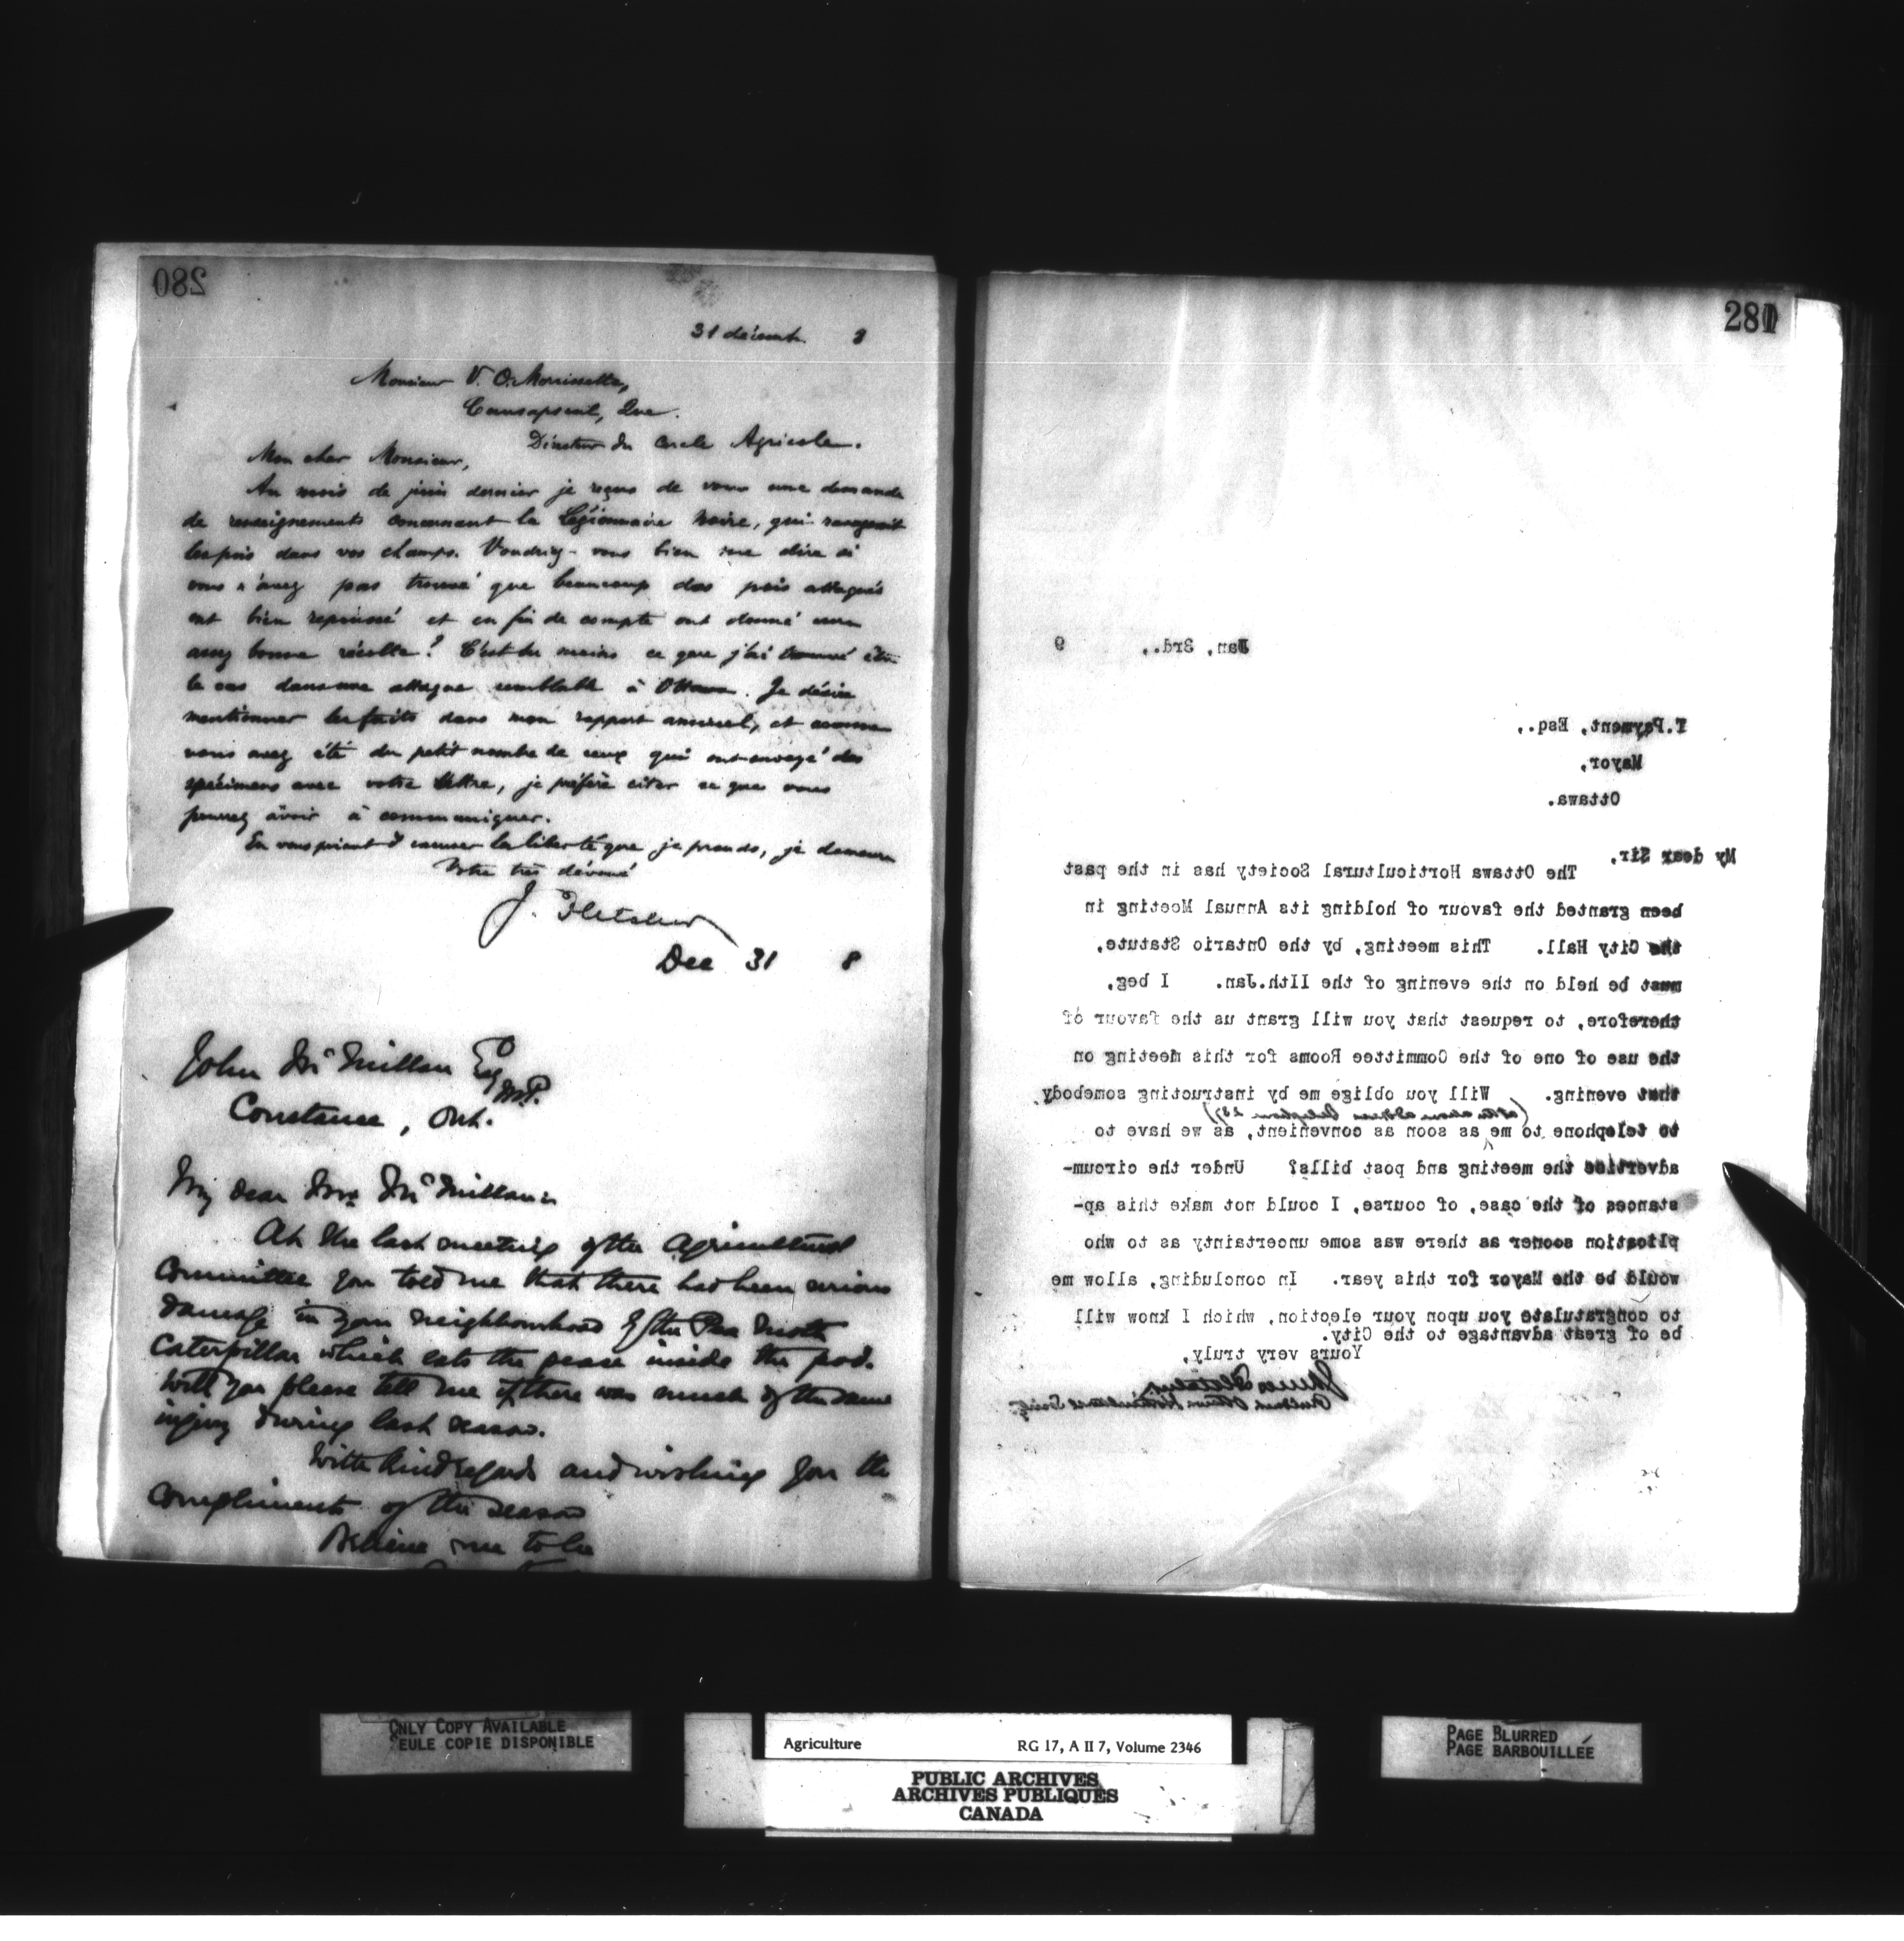 280
31 décemb. 8
Monsieur V. O. Morrissette,
Causapscal, Que.
Directeur du Cercle Agricole.
Mon cher Monsieur,
Au mois de juin dernier je reçus de vous une demande
de renseignements concernant la Légionnaire noire, qui ravageait
les pois dans vos champs. Voudriez-vous bien me dire si
vous n'avez pas trouvé que beaucoup des pois attaqués
ont bien repoussé et en fin de compte ont donné une
assez bonne récolte? C'est du moins ce que j'ai trouvé être
le cas dans une attaque semblable à Ottawa. Je désire
mentionner les faits dans mon rapport annuel, et comme
vous avez été du petit nombre de ceux qui ont envoyé des
spécimens avec votre lettre, je préfère citer ce que vous
pourrez avoir à communiquer.
En vous priant d'excuser la liberté que je prends, je demeure
Votre très dévoué
J. Fletcher
Dec 31 8
John McMillan Esq M.P.
Constance, Ont.
My dear Mr. McMillan:
At the last meeting of the Agricultural
Committee you told me that there had been serious
damage in your neighbourhood by the Pea Moth
Caterpillar which eats the pease inside the pod.
Will you please tell me if there was much of the same
injury during last season.
With kind regards and wishing you the
compliments of the season
Believe me to be
281
Jan, 3rd., 9
T.Payment, Esq.,
Mayor,
Ottawa.
My dear Sir,
The Ottawa Horticultural Society has in the past
been granted the favour of holding its Annual Meeting in
the City Hall. This meeting, by the Ontario Statute,
must be held on the evening of the 11th.Jan. I beg,
therefore, to request that you will grant us the favour of
the use of one of the Committee Rooms for this meeting on
that evening. Will you oblige me by instructing somebody
(at the above address Telephone 28)
to telephone to me as soon as convenient, as we have to
advertise the meeting and post bills? Under the circum-
stances of the case, of course, I could not make this ap-
plication sooner as there was some uncertainty as to who
would be the Mayor for this year. In concluding, allow me
to congratulate you upon your election, which I know will
be of great advantage to the City.
Yours very truly,
James Fletcher
President Ottawa Horticultural Society
ONLY COPY AVAILABLE
SEULE COPIE DISPONIBLE
Agriculture RG 17, A II 7, Volume 2346
PUBLIC ARCHIVES
ARCHIVES PUBLIQUES
CANADA
PAGE BLURRED
PAGE BARBOUILLÉE